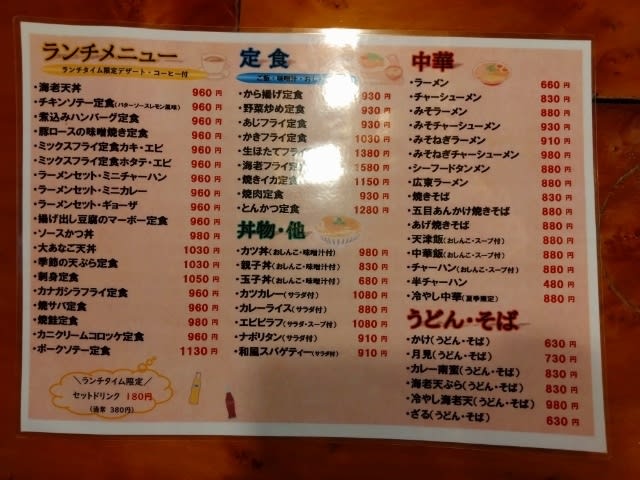 ランチメニュー
ランチタイム限定デザート・コーヒー付
・海老天丼 960円
・チキンソテー定食(バターソースレモン風味) 960円
・煮込みハンバーグ定食 960円
・豚ロースの味噌焼き定食 960円
・ミックスフライ定食カキ・エビ 960円
・ミックスフライ定食ホタテ・エビ 960円
・ラーメンセット・ミニチャーハン 960円
・ラーメンセット・ミニカレー 960円
・ラーメンセット・ギョーザ 960円
・揚げ出し豆腐のマーボー定食 960円
・ソースかつ丼 980円
・大あなご天丼 1030円
・季節の天ぷら定食 1030円
・刺身定食 1050円
・カナガシラフライ定食 960円
・焼サバ定食 960円
・焼鮭定食 980円
・カニクリームコロッケ定食 960円
・ポークソテー定食 1130円
ランチタイム限定
セットドリンク 180円
(通常 380円)
定食
ご飯・味噌汁・おしんこ
・から揚げ定食 930円
・野菜炒め定食 930円
・あじフライ定食 930円
・かきフライ定食 1030円
・生ほたてフライ 1380円
・海老フライ定食 1580円
・焼きイカ定食 1150円
・焼肉定食 930円
・とんかつ定食 1280円
丼物・他
・カツ丼(おしんこ・味噌汁付) 980円
・親子丼(おしんこ・味噌汁付) 830円
・玉子丼(おしんこ・味噌汁付) 680円
・カツカレー(サラダ付) 1080円
・カレーライス(サラダ付) 880円
・エビピラフ(サラダ・スープ付) 1080円
・ナポリタン(サラダ付) 910円
・和風スパゲティー(サラダ付) 910円
中華
・ラーメン 660円
・チャーシューメン 830円
・みそラーメン 880円
・みそチャーシューメン 930円
・みそねぎラーメン 910円
・みそねぎチャーシューメン 980円
・シーフードタンメン 880円
・広東ラーメン 880円
・焼きそば 830円
・五目あんかけ焼きそば 880円
・あげ焼きそば 880円
・天津飯(おしんこ・スープ付) 880円
・中華飯(おしんこ・スープ付) 880円
・チャーハン(おしんこ・スープ付) 880円
・半チャーハン 480円
・冷やし中華(夏季限定) 880円
うどん・そば
・かけ(うどん・そば) 630円
・月見(うどん・そば) 730円
・カレー南蛮(うどん・そば) 830円
・海老天ぷら(うどん・そば) 830円
・冷やし海老天(うどん・そば) 980円
・ざる(うどん・そば) 630円